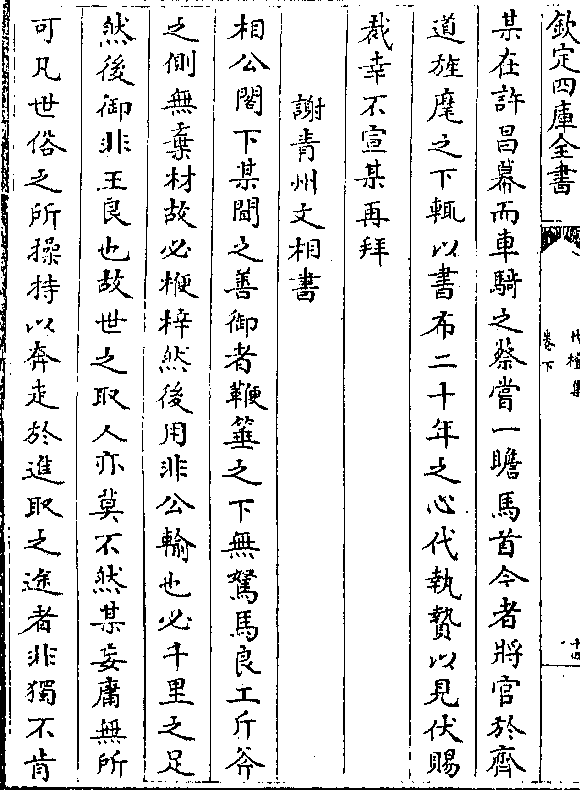 欽定四庫全書
卷下
十四
某在許昌幕而車騎之蔡嘗一瞻馬首今者將官於齊
道旌麾之下輒以書布二十年之心代執贄以見伏賜
裁幸不宣某再拜
謝青州文相書
相公閣下某聞之善御者鞭箠之下無駑馬良工斤斧
之側無棄材故必楩梓然後用非公輸也必千里之足
然後御非王良也故世之取人亦莫不然某妄庸無所
可凡世俗之所操持以奔走於進取之途者非獨不肯